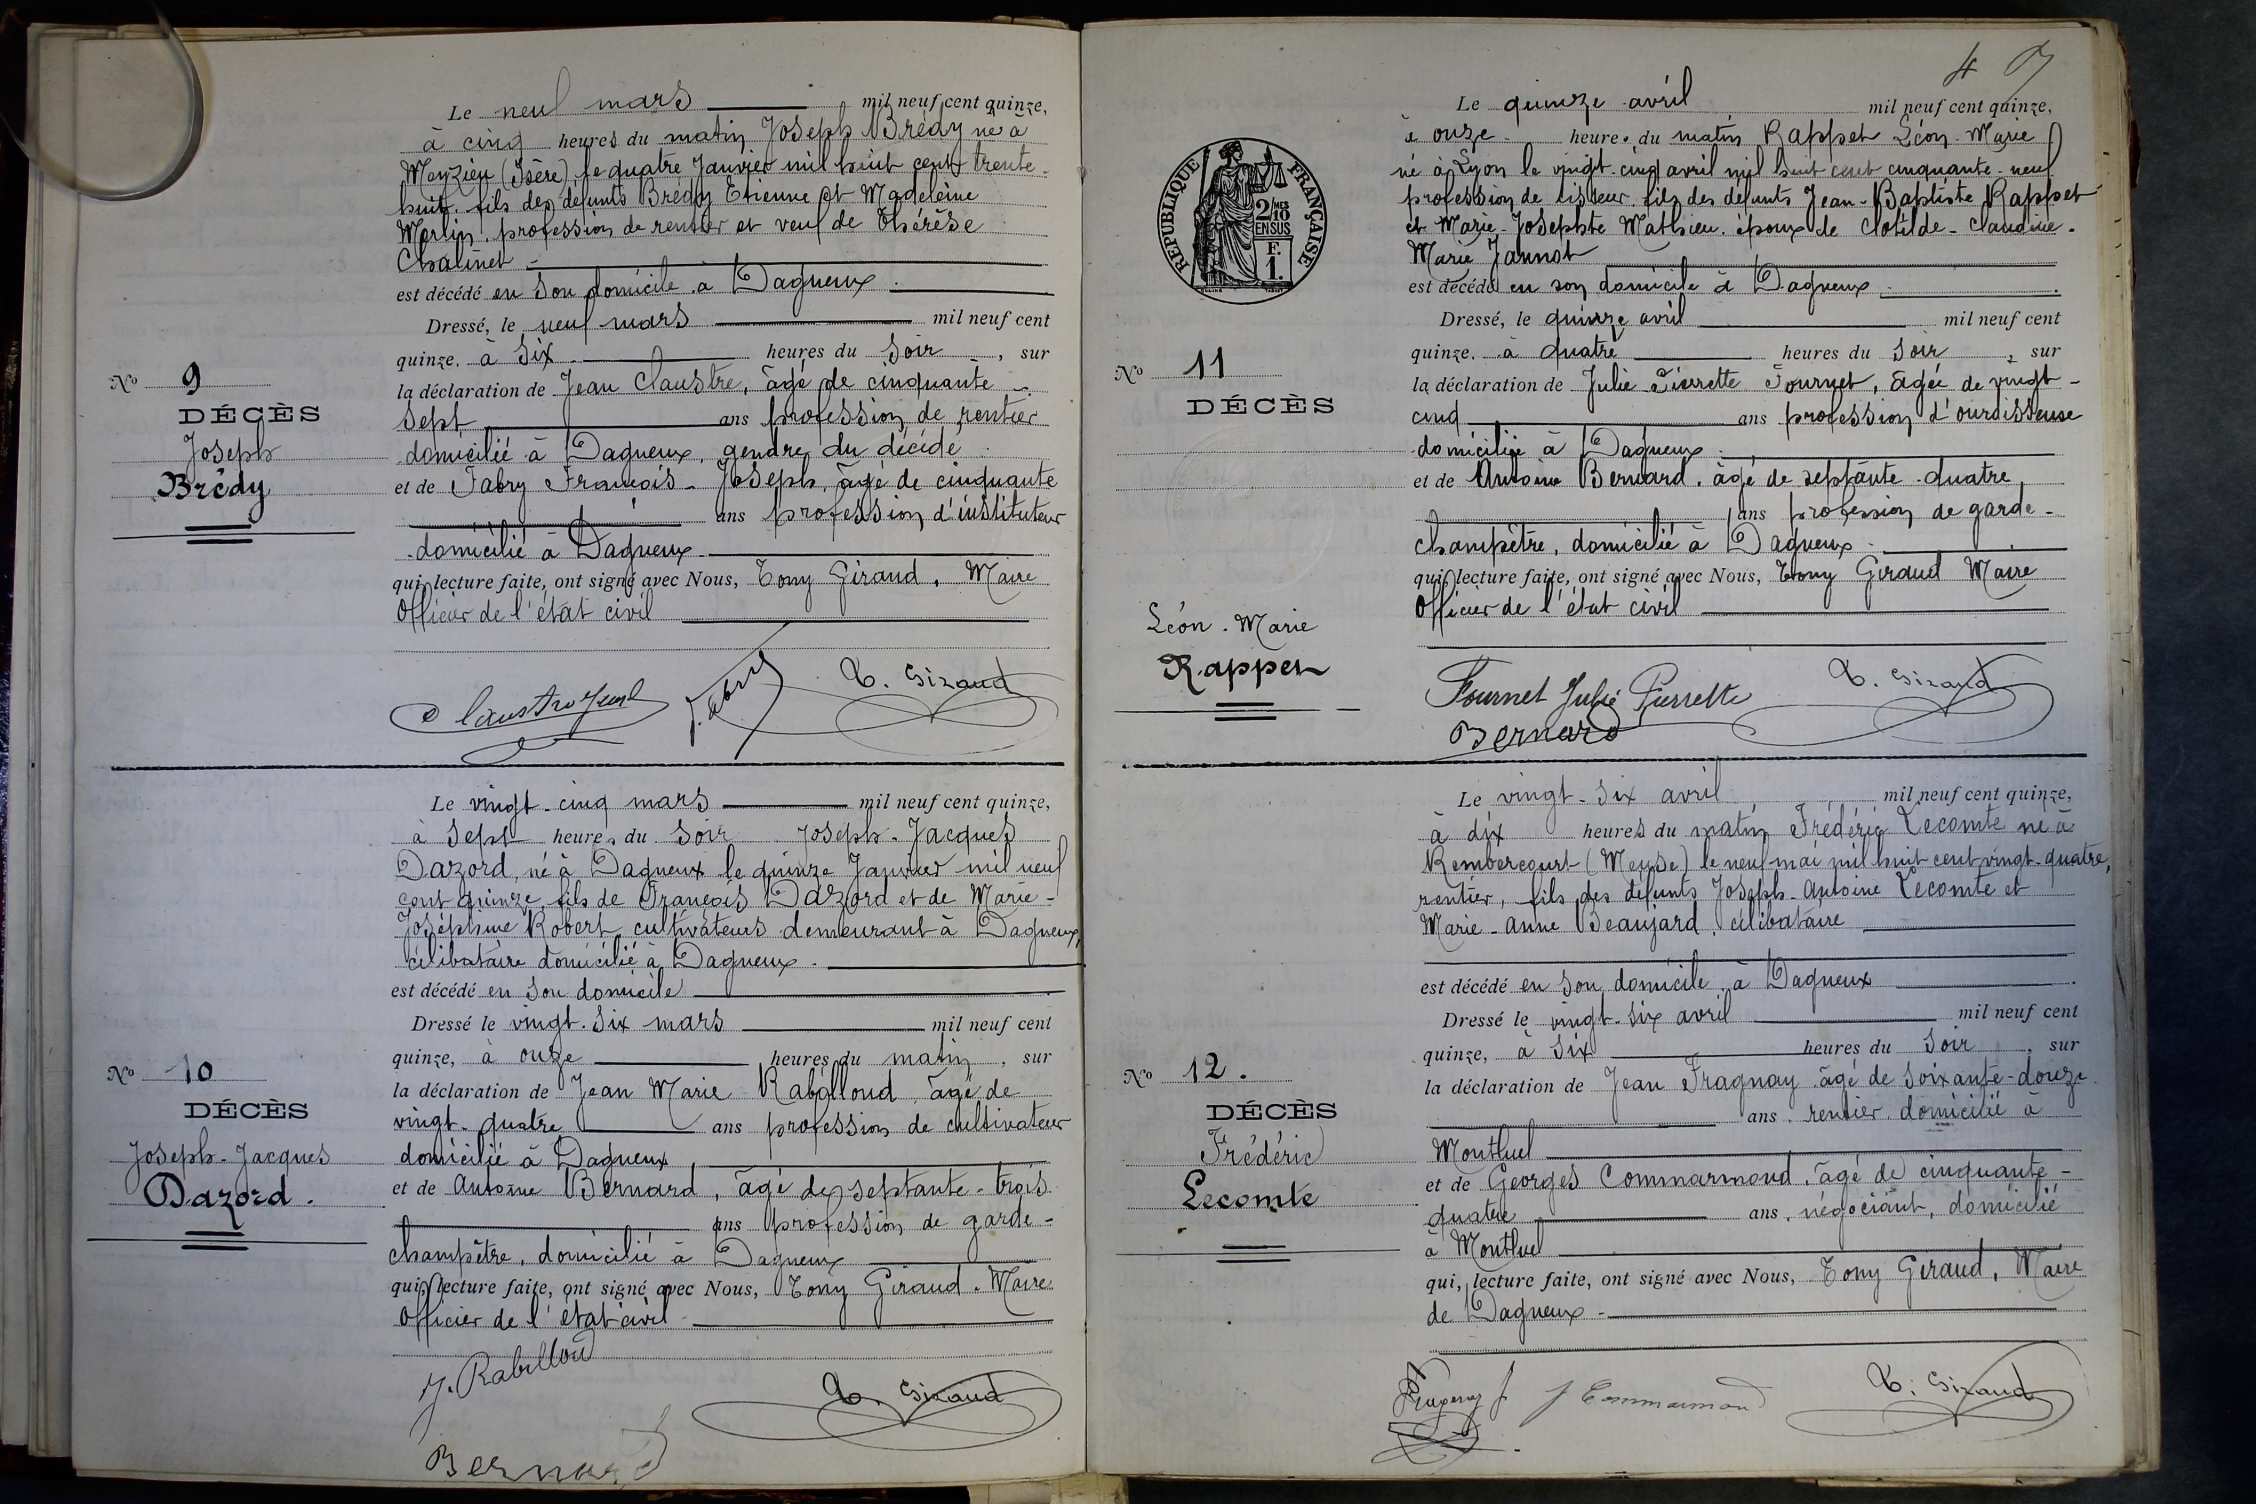 Le neuf mars mil neuf cent quinze,
à cinq heures du matin Joseph Brédy né à
Meyzieu (Isère) le quatre Janvier mil huit cent trente-
huit, fils des défunts Brédy Etienne et Madeleine
Merlin, profession de rentier et veuf de Thérèse
Chalinet
est décédé en son domicile à Dagneux
Dressé, le neuf mars mil neuf cent
quinze, à six heures du soir, sur
la déclaration de Jean Claustre, âgé de cinquante-
sept ans profession de rentier
domicilié à Dagneux, gendre du décédé
et de Fabry François-Joseph, âgé de cinquante
ans profession d'instituteur
domicilié à Dagneux
qui, lecture faite, ont signé avec Nous, Tony Giraud, Maire
Officier de l'état civil
No 9
DÉCÈS
Joseph
Brédy
J. Fabry T. Giraud
Le vingt-cinq mars mil neuf cent quinze,
à sept heures du soir Joseph-Jacques
Dazord, né à Dagneux le quinze Janvier mil neuf
cent quinze, fils de François Dazord et de Marie-
Joséphine Robert cultivateurs demeurant à Dagneux,
célibataire domicilié à Dagneux.
est décédé en son domicile
Dressé le vingt-six mars mil neuf cent
quinze, à onze heures du matin, sur
la déclaration de Jean Marie Rabilloud âgé de
vingt-quatre ans profession de cultivateur
domicilié à Dagneux
et de Antoine Bernard, âgé de septante-trois
ans profession de garde-
champêtre, domicilié à Dagneux
qui, lecture faite, ont signé avec Nous, Tony Giraud, Maire
Officier de l'état civil
No 10
DÉCÈS
Joseph-Jacques
Dazord.
J. Rabilloud
T. Giraud
Bernard
4
Le quinze avril mil neuf cent quinze,
à onze heures du matin Rappet Léon-Marie
né à Lyon le vingt-cinq avril mil huit cent cinquante-neuf
profession de tisseur, fils des défunts Jean-Baptiste Rappet
et Marie-Josephte Mathieu, époux de Clotilde-Claudine-
Marie Jannot
est décédé en son domicile à Dagneux
Dressé, le quinze avril mil neuf cent
quinze, à quatre heures du soir, sur
la déclaration de Julie Pierrette Fournet, âgée de vingt-
cinq ans profession d'ourdisseuse
domiciliée à Dagneux
et de Antoine Bernard, âgé de septante-quatre
ans profession de garde-
champêtre, domicilié à Dagneux
qui, lecture faite, ont signé avec Nous, Tony Giraud Maire
Officier de l'état civil
REPUBLIQUE FRANÇAISE
2/10MES
EN SUS
F.
1.
No 11
DÉCÈS
Léon-Marie
Rappet
Fournet Julie Pierrette T. Giraud
Bernard
Le vingt-six avril mil neuf cent quinze,
à dix heures du matin Frédéric Lecomte né à
Rembercourt (Meuse) le neuf mai mil huit cent vingt-quatre,
rentier, fils des défunts Joseph-Antoine Lecomte et
Marie-Anne Beaujard, célibataire
est décédé en son domicile à Dagneux
Dressé le vingt-six avril mil neuf cent
quinze, à six heures du soir, sur
la déclaration de Jean Fragnay âgé de soixante-douze
ans, rentier domicilié à
Montluel
et de Georges Commarmond, âgé de cinquante-
quatre ans, négociant, domicilié
à Montluel
qui, lecture faite, ont signé avec Nous, Tony Giraud, Maire
de Dagneux
No 12.
DÉCÈS
Frédéric
Lecomte
Commarmond T. Giraud